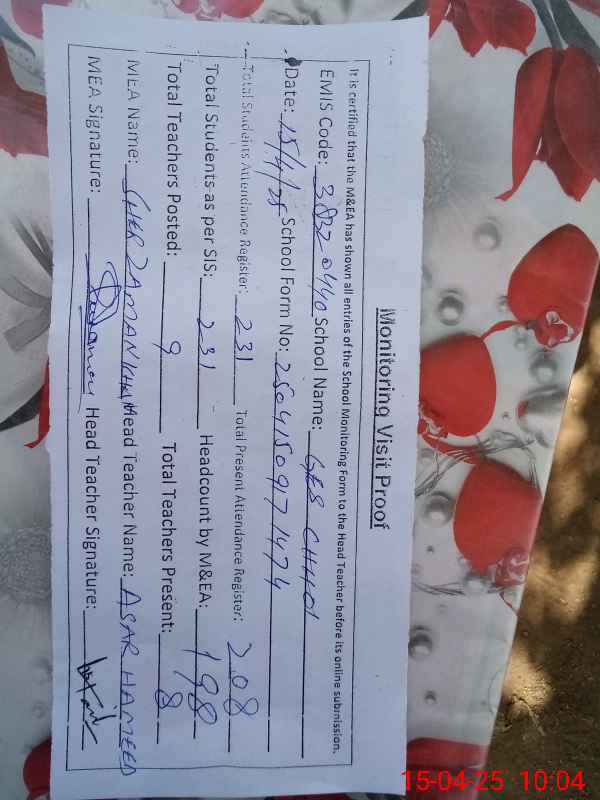 Monitoring Visit Proof
It is certified that the M&EA has shown all entries of the School Monitoring Form to the Head Teacher before its online submission.
EMIS Code: 38320440 School Name: GES CHHOI
Date: 15/4/25 School Form No: 2504150917 1474
Total Students Attendance Register: 231 Total Present Attendance Register: 208
Total Students as per SIS: 231 Headcount by M&EA: 198
Total Teachers Posted: 9 Total Teachers Present: 8
MEA Name: SHER ZAMAN KHAN Head Teacher Name: ASAR HAMEED
MEA Signature: Head Teacher Signature:
15-04-25 10:04